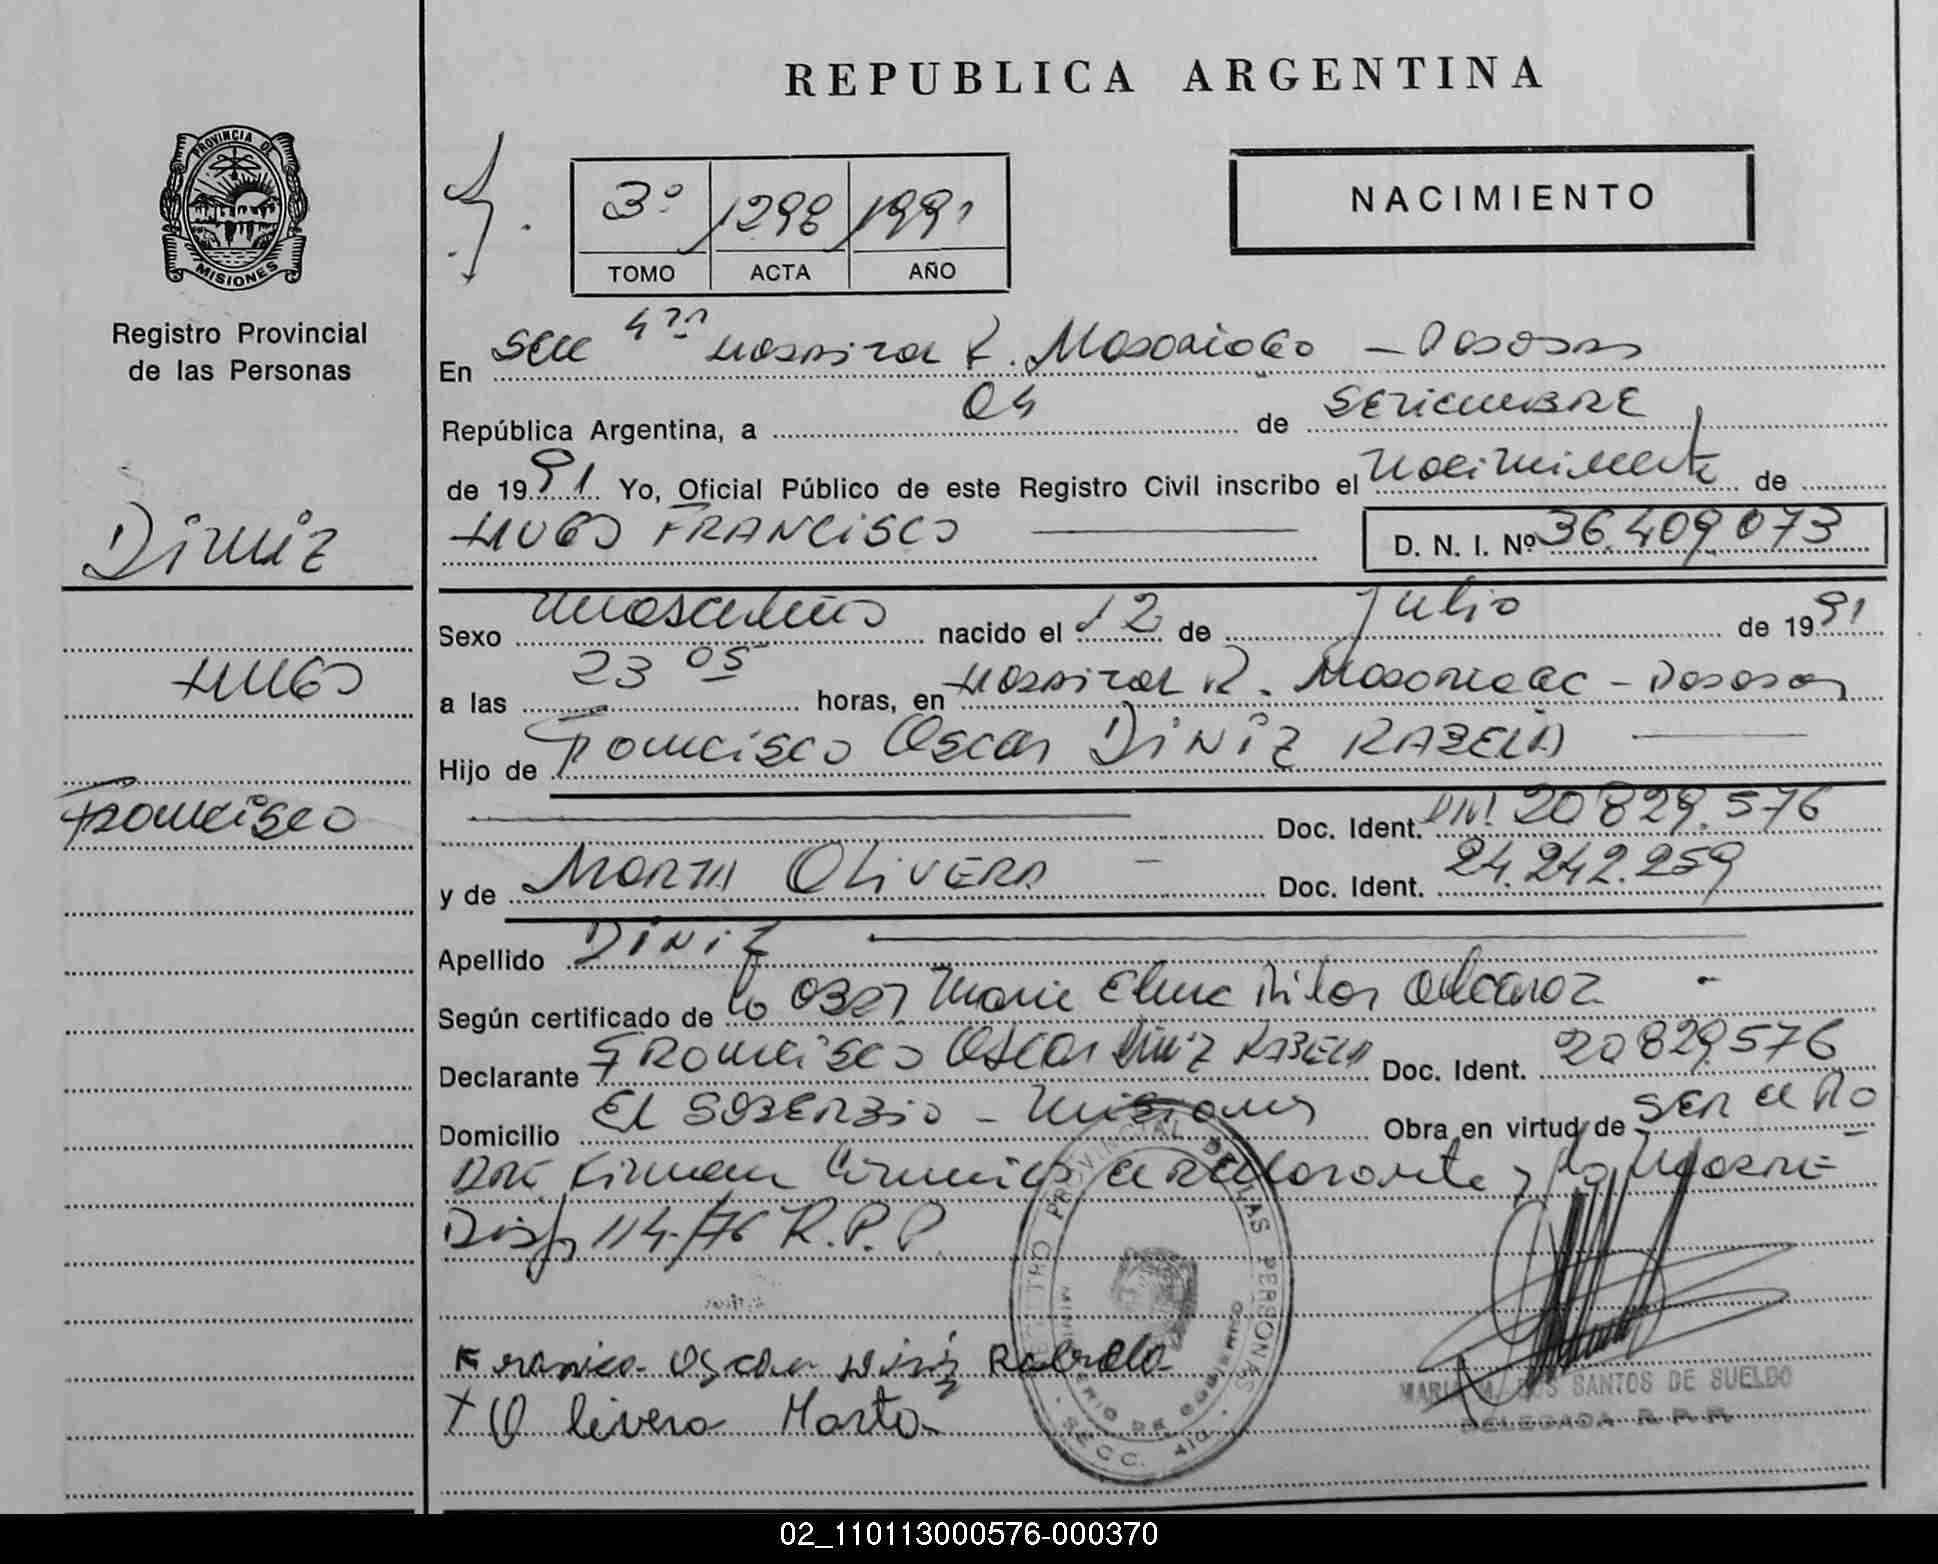 REPUBLICA ARGENTINA
PROVINCIA DE
MISIONES
Registro Provincial
de las Personas
NACIMIENTO
3º 1298 1991
TOMO ACTA AÑO
En Secc 4ta Hospital R. Madariaga - Posadas
República Argentina, a 04 de SETIEMBRE
de 1991 Yo, Oficial Público de este Registro Civil inscribo el Nacimiento de
HUGO FRANCISCO
D. N. I. Nº 36.409.073
Diniz
Hugo
Francisco
Sexo masculino nacido el 12 de Julio de 1991
a las 23 05 horas, en Hospital R. Madariaga - Posadas
Hijo de Francisco Oscar DINIZ RABELO
Doc. Ident. DNI 20829.576
y de MARTA OLIVERA - Doc. Ident. 24.242.259
Apellido DINIZ
Según certificado de la Obst Maria Elena
Declarante Francisco Oscar Diniz RABELO Doc. Ident. 20829576
Domicilio EL SOBERBIO - Misiones Obra en virtud de ser
Firman declarante y la Madre
Disp 114/76 R.P.P.
Oscar Diniz Rabelo
X Olivera Marta
REGISTRO PROVINCIAL DE LAS PERSONAS
MINISTERIO DE GOBIERNO
SECC. 4ta
SANTOS DE SUELDO
DELEGADA R.P.P.
02_110113000576-000370